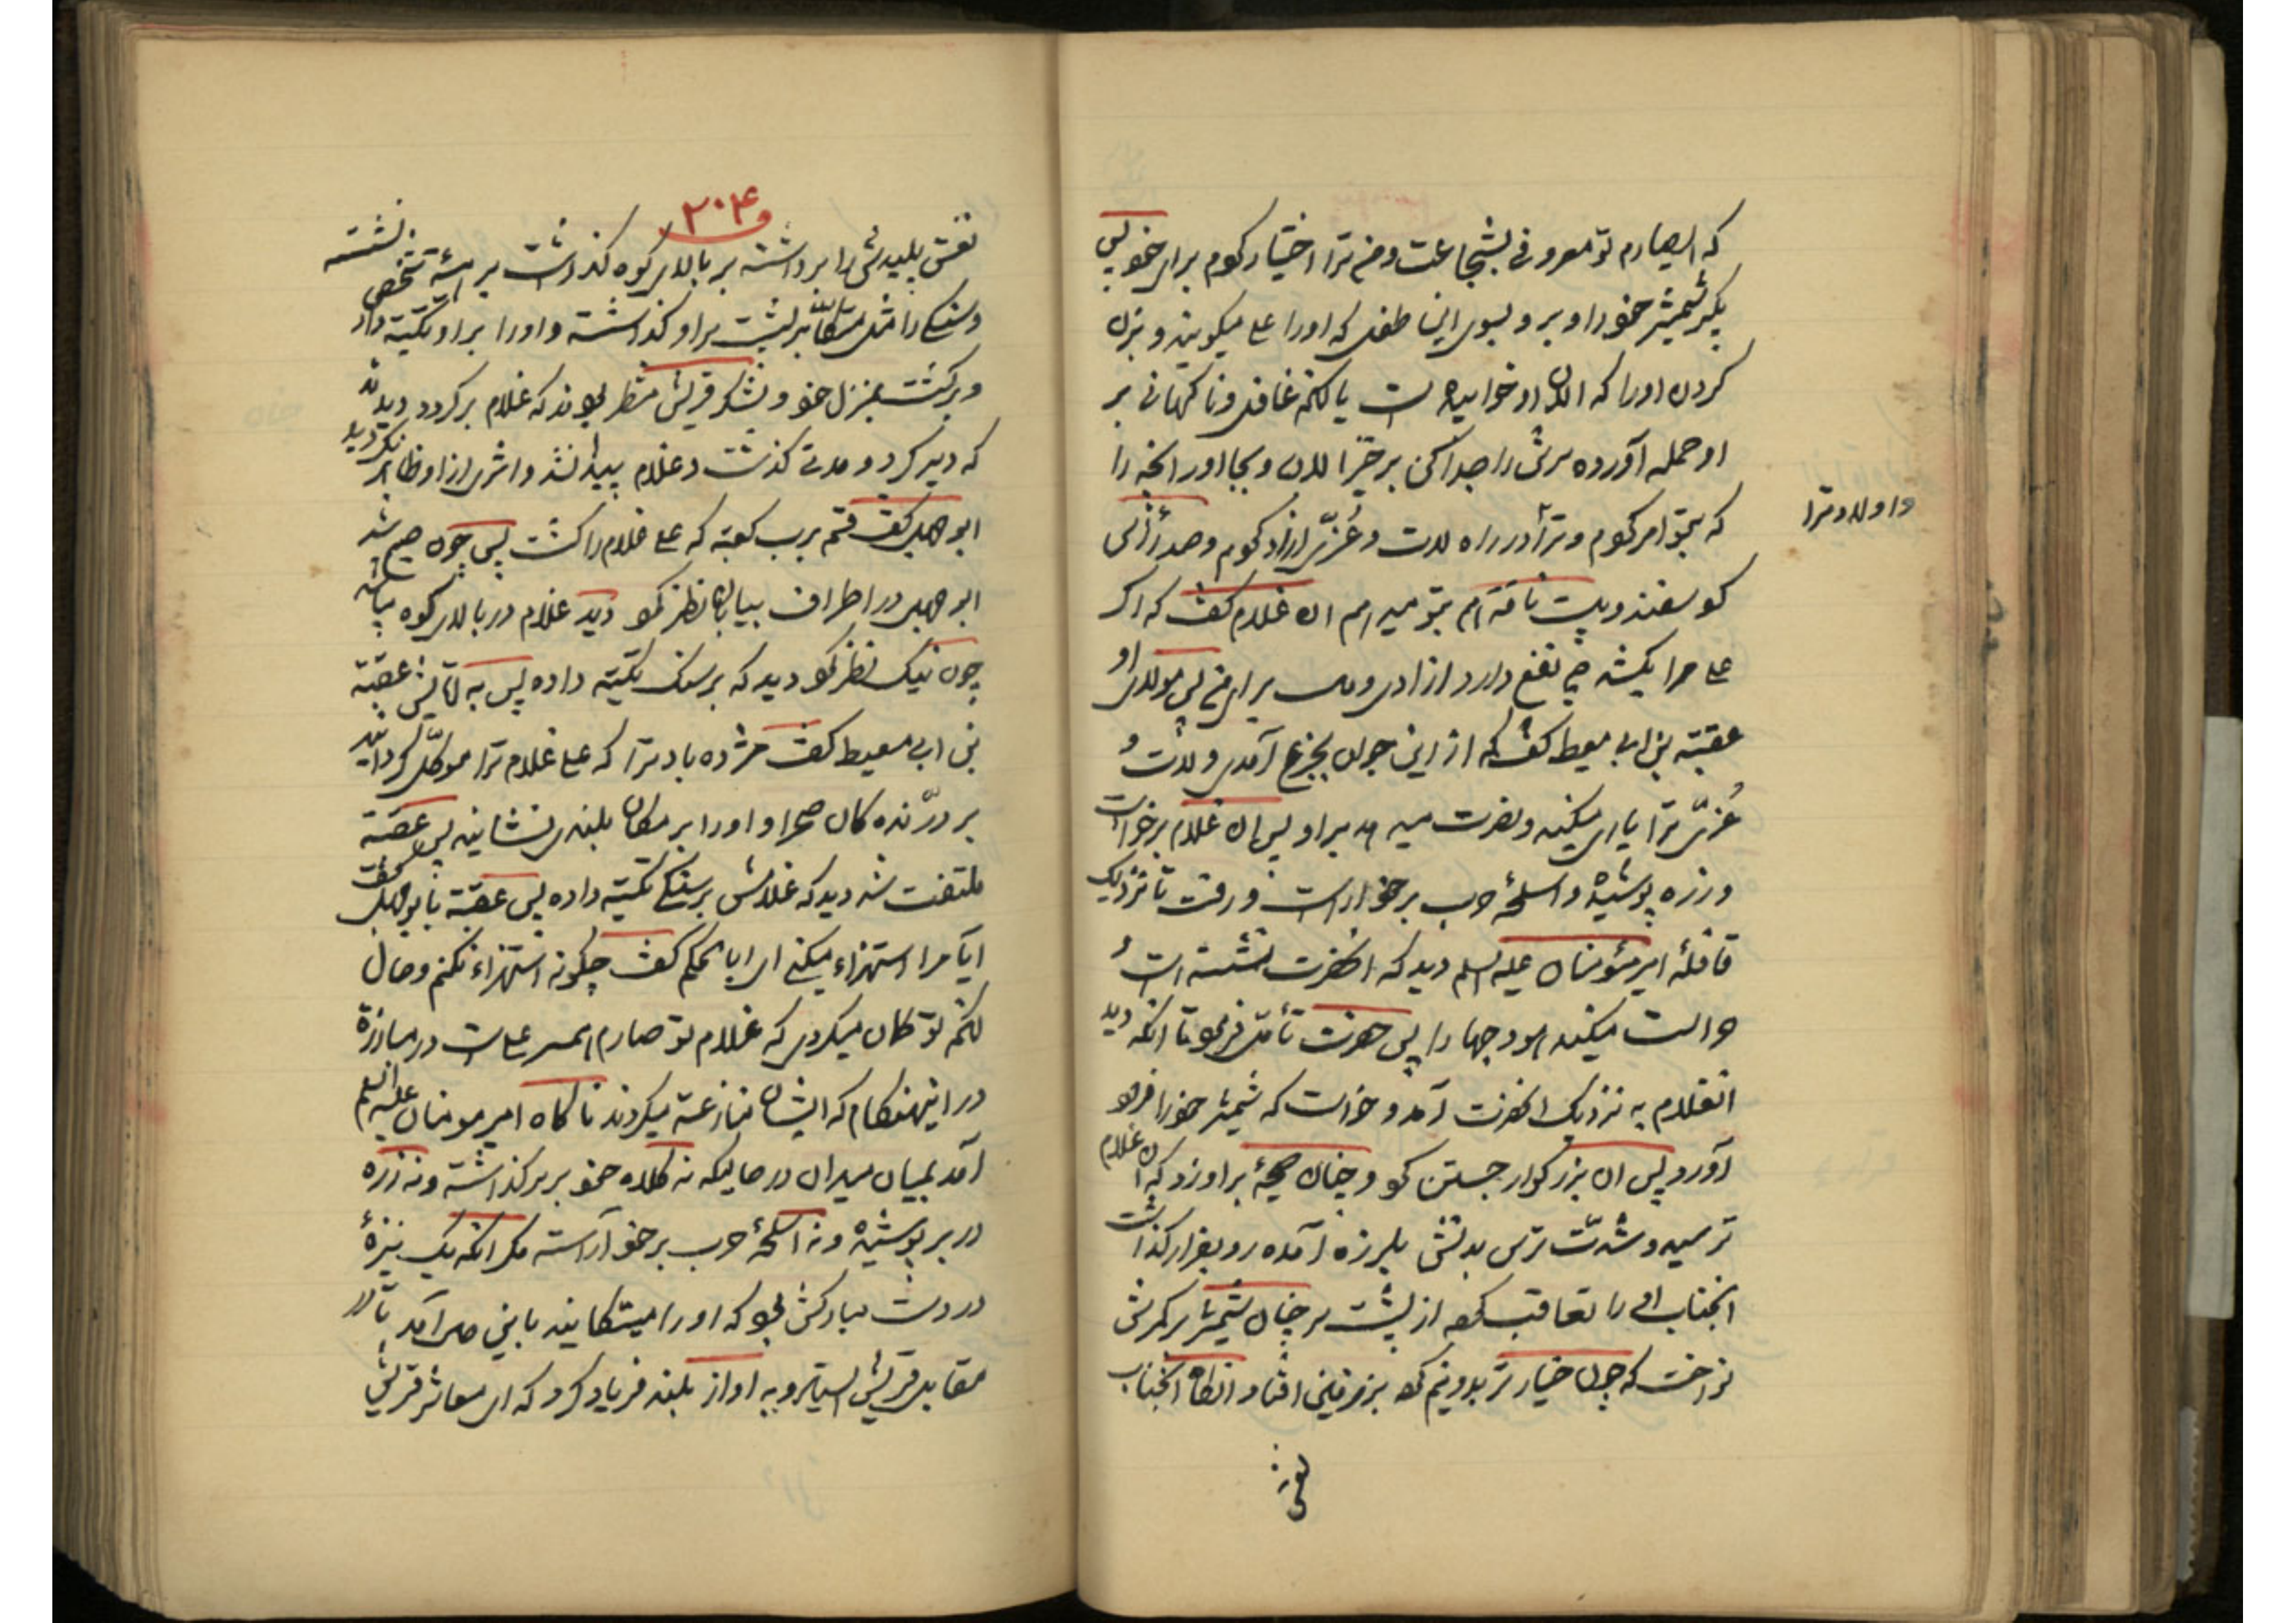 که ایصارم تو معروفی بشجاعت و من ترا اختیار کردم برای خود پس
بگیر شمشیر خود را و برو بسوی این طفل که او را علی میگویند و بزن
کردن او را که الان او خوابیده است یا آنکه غافل و ناکهانی بر
او حمله آورده سرش را جدا کن بر خیز الان و بجا اور آنچه را
که بتو امر کردم و ترا در راه لات و عُزّی ازاد کردم و صد رأس
واولاد ترا
کوسفند و بیست ناقه هم بتو میدهم ان غلام گفت که اکر
علی مرا بکشد چه نفع دارد ازادی و مال برای من پس مولای او
عقبة بن ابی معیط گفت که از این جوان بجزع آمدی و لات و
عُزّی ترا یاری میکند و نصرت میدهد بر او پس ان غلام برخواست
و زره پوشیده و اسلحهٔ حرب بر خود اراست و رفت تا نزدیک
قافلهٔ امیر مؤمنان علیه السلم دید که انحضرت نشسته است و
حراست میکند هودجها را پس حضرت تأمل فرمود تا آنکه دید
انغلام به نزدیک انحضرت آمد و خواست که شمشیر خود را فرود
آورد پس ان بزرکوار جستن کرد و چنان صیحهٔ بر او زد که ان غلام
ترسید و شدّت ترس بدنش بلرزه آمده رو بفرار کذاشت
انجناب او را تعاقب کرده از پشت سر چنان شمشیر بر کمرش
نواخت که چون خیار تر بدو نیم کرد بر زمین افتاد انکاه انجناب
نعش
۲۰۴
نعش پلیدش را برداشته بر بالای کوه کذاشت بر هیئة شخص نشسته
و سنکی را مثل متکّا بر پشت بر او کذاشته و او را بر او تکیه داد
و برکشت بمنزل خود و لشکر قریش منتظر بودند که غلام بر کردد دیدند
که دیر کرد و مدتی کذشت و غلام پیدا نشد و اثری از او ظاهر نکردید
ابوجهل گفت قسم برب کعبه که علی غلام را کشت پس چون صبح شد
ابوجهل در اطراف بیابان نظر نمود دید غلام در بالای کوه میباشد
چون نیک نظر نمود دید که بر سنک تکیه داده پس به اقایش عقبة
بن ابی معیط گفت مژده باد ترا که علی غلام ترا موکّل کردانید
بر درّنده کان صحرا و او را بر مکان بلندی نشانیده پس عقبة
ملتفت شد دید که غلامش بر سنکی تکیه داده پس عقبة با بوجهل گفت
ایا مرا استهزاء میکنی ای ابا الحکم گفت چکونه استهزاء نکنم و حال
آنکه تو کمان میکردی که غلام تو صارم همسر علی است در مبارزة
در اینهنکام که ایشان منازعة میکردند ناکاه امیر مومنان علیه السلم
آمد بمیان میدان در حالیکه نه کلاه خود بر سر کذاشته و نه زره
در بر پوشیده و نه اسلحهٔ حرب بر خود آراسته مکر انکه یک نیزهٔ
در دست مبارکش بود که او را میتکانید باین حال آمد تا در
مقابل قریش ایستاد و به اواز بلند فریاد کرد که ای معاشر قریش